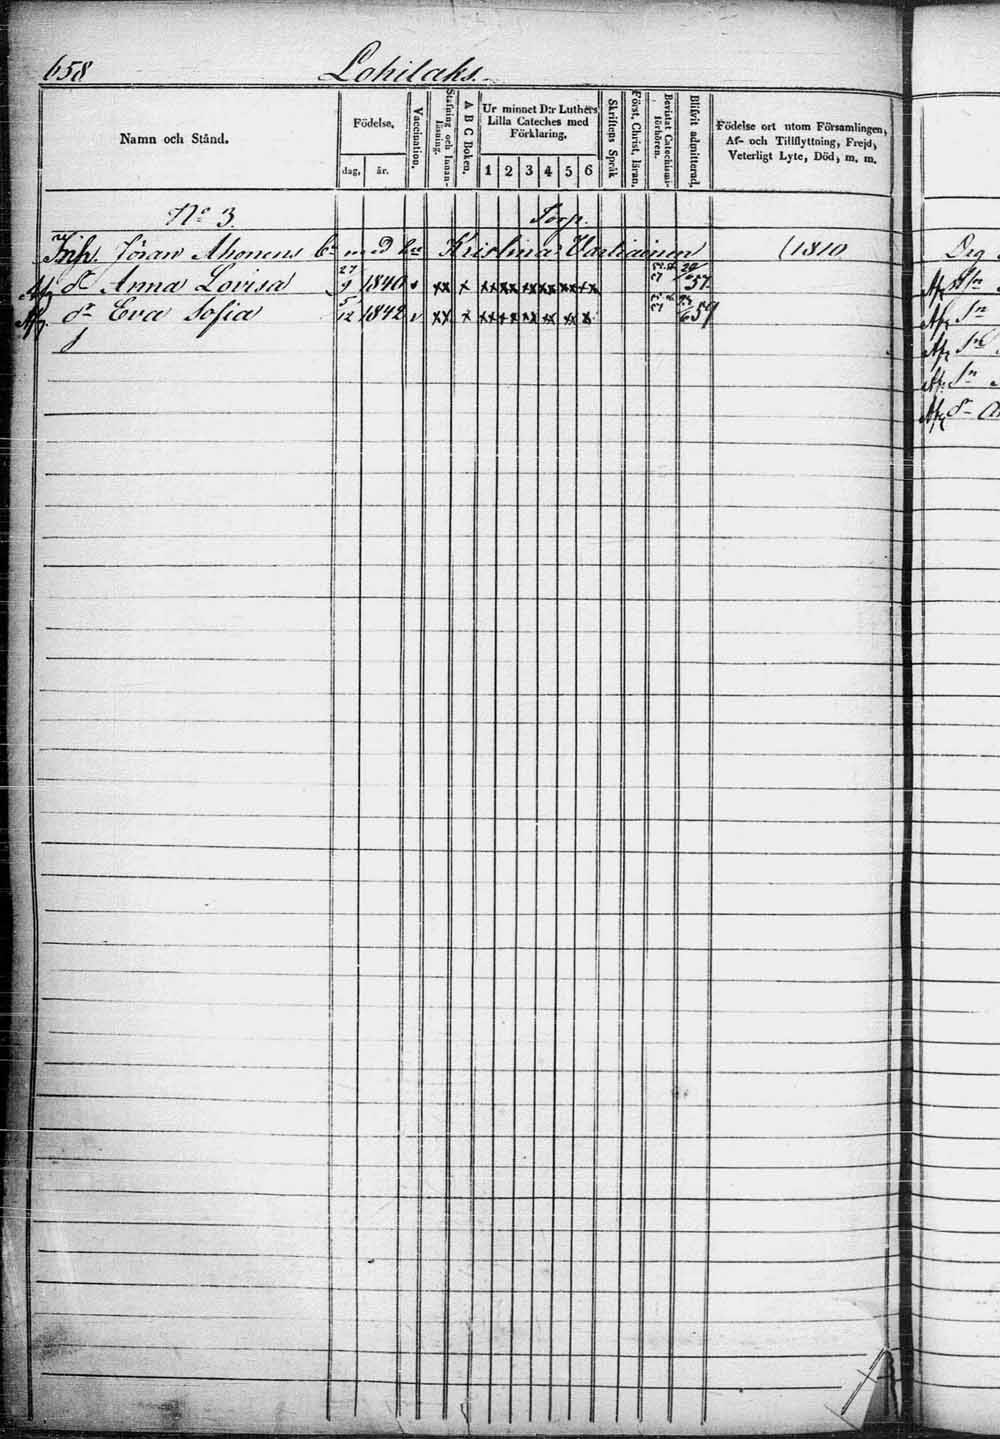 658 Lohilaks.
Namn och Stånd.
Födelse.
dag, år.
Vaccination.
Stafning och Innan-läsning.
A B C Boken.
Ur minnet D:r Luthers
Lilla Cateches med
Förklaring.
1 2 3 4 5 6
Skriftens Språk
Först. Christ. läran.
Bevistat Catechismi-förhören.
Blifvit admitterad.
Födelse ort utom Församlingen,
Af- och Tillflyttning, Frejd,
Veterligt Lyte, Död, m. m.
No 3. Torp.
Inh. Jöran Ahonens med Kristina Vartiainen (1810
Afg dr Anna Lovisa 27/9 1840 v xx x xx xx xx xx xx xx 57
Afg dr Eva Sofia 5/12 1842 v xx x xx xx xx xx xx x 59
Afg Sn
Afg Sn
Afg Sn
Afg Sn
Afg dr